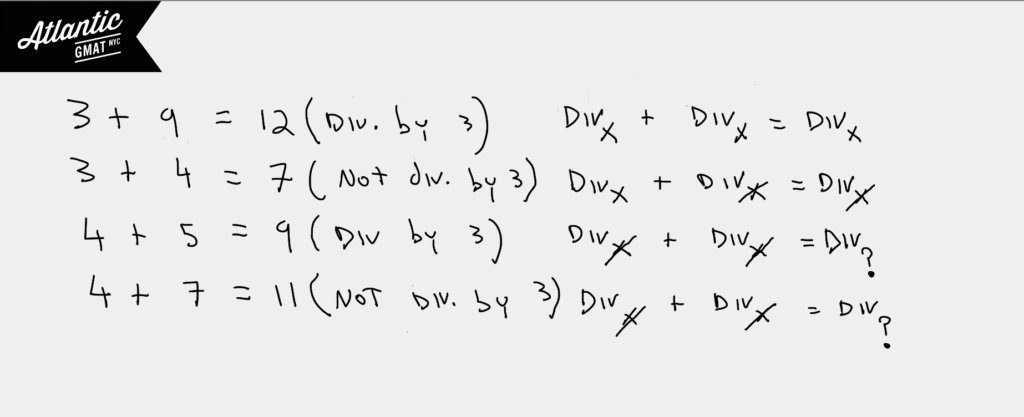 Atlantic
GMAT NYC
3 + 9 = 12 (Div. by 3) Divx + Divx = Divx
3 + 4 = 7 (Not div. by 3) Divx + Divx̸ = Divx̸
4 + 5 = 9 (Div by 3) Divx̸ + Divx̸ = Div?
4 + 7 = 11 (NOT Div. by 3) Divx̸ + Divx̸ = Div?